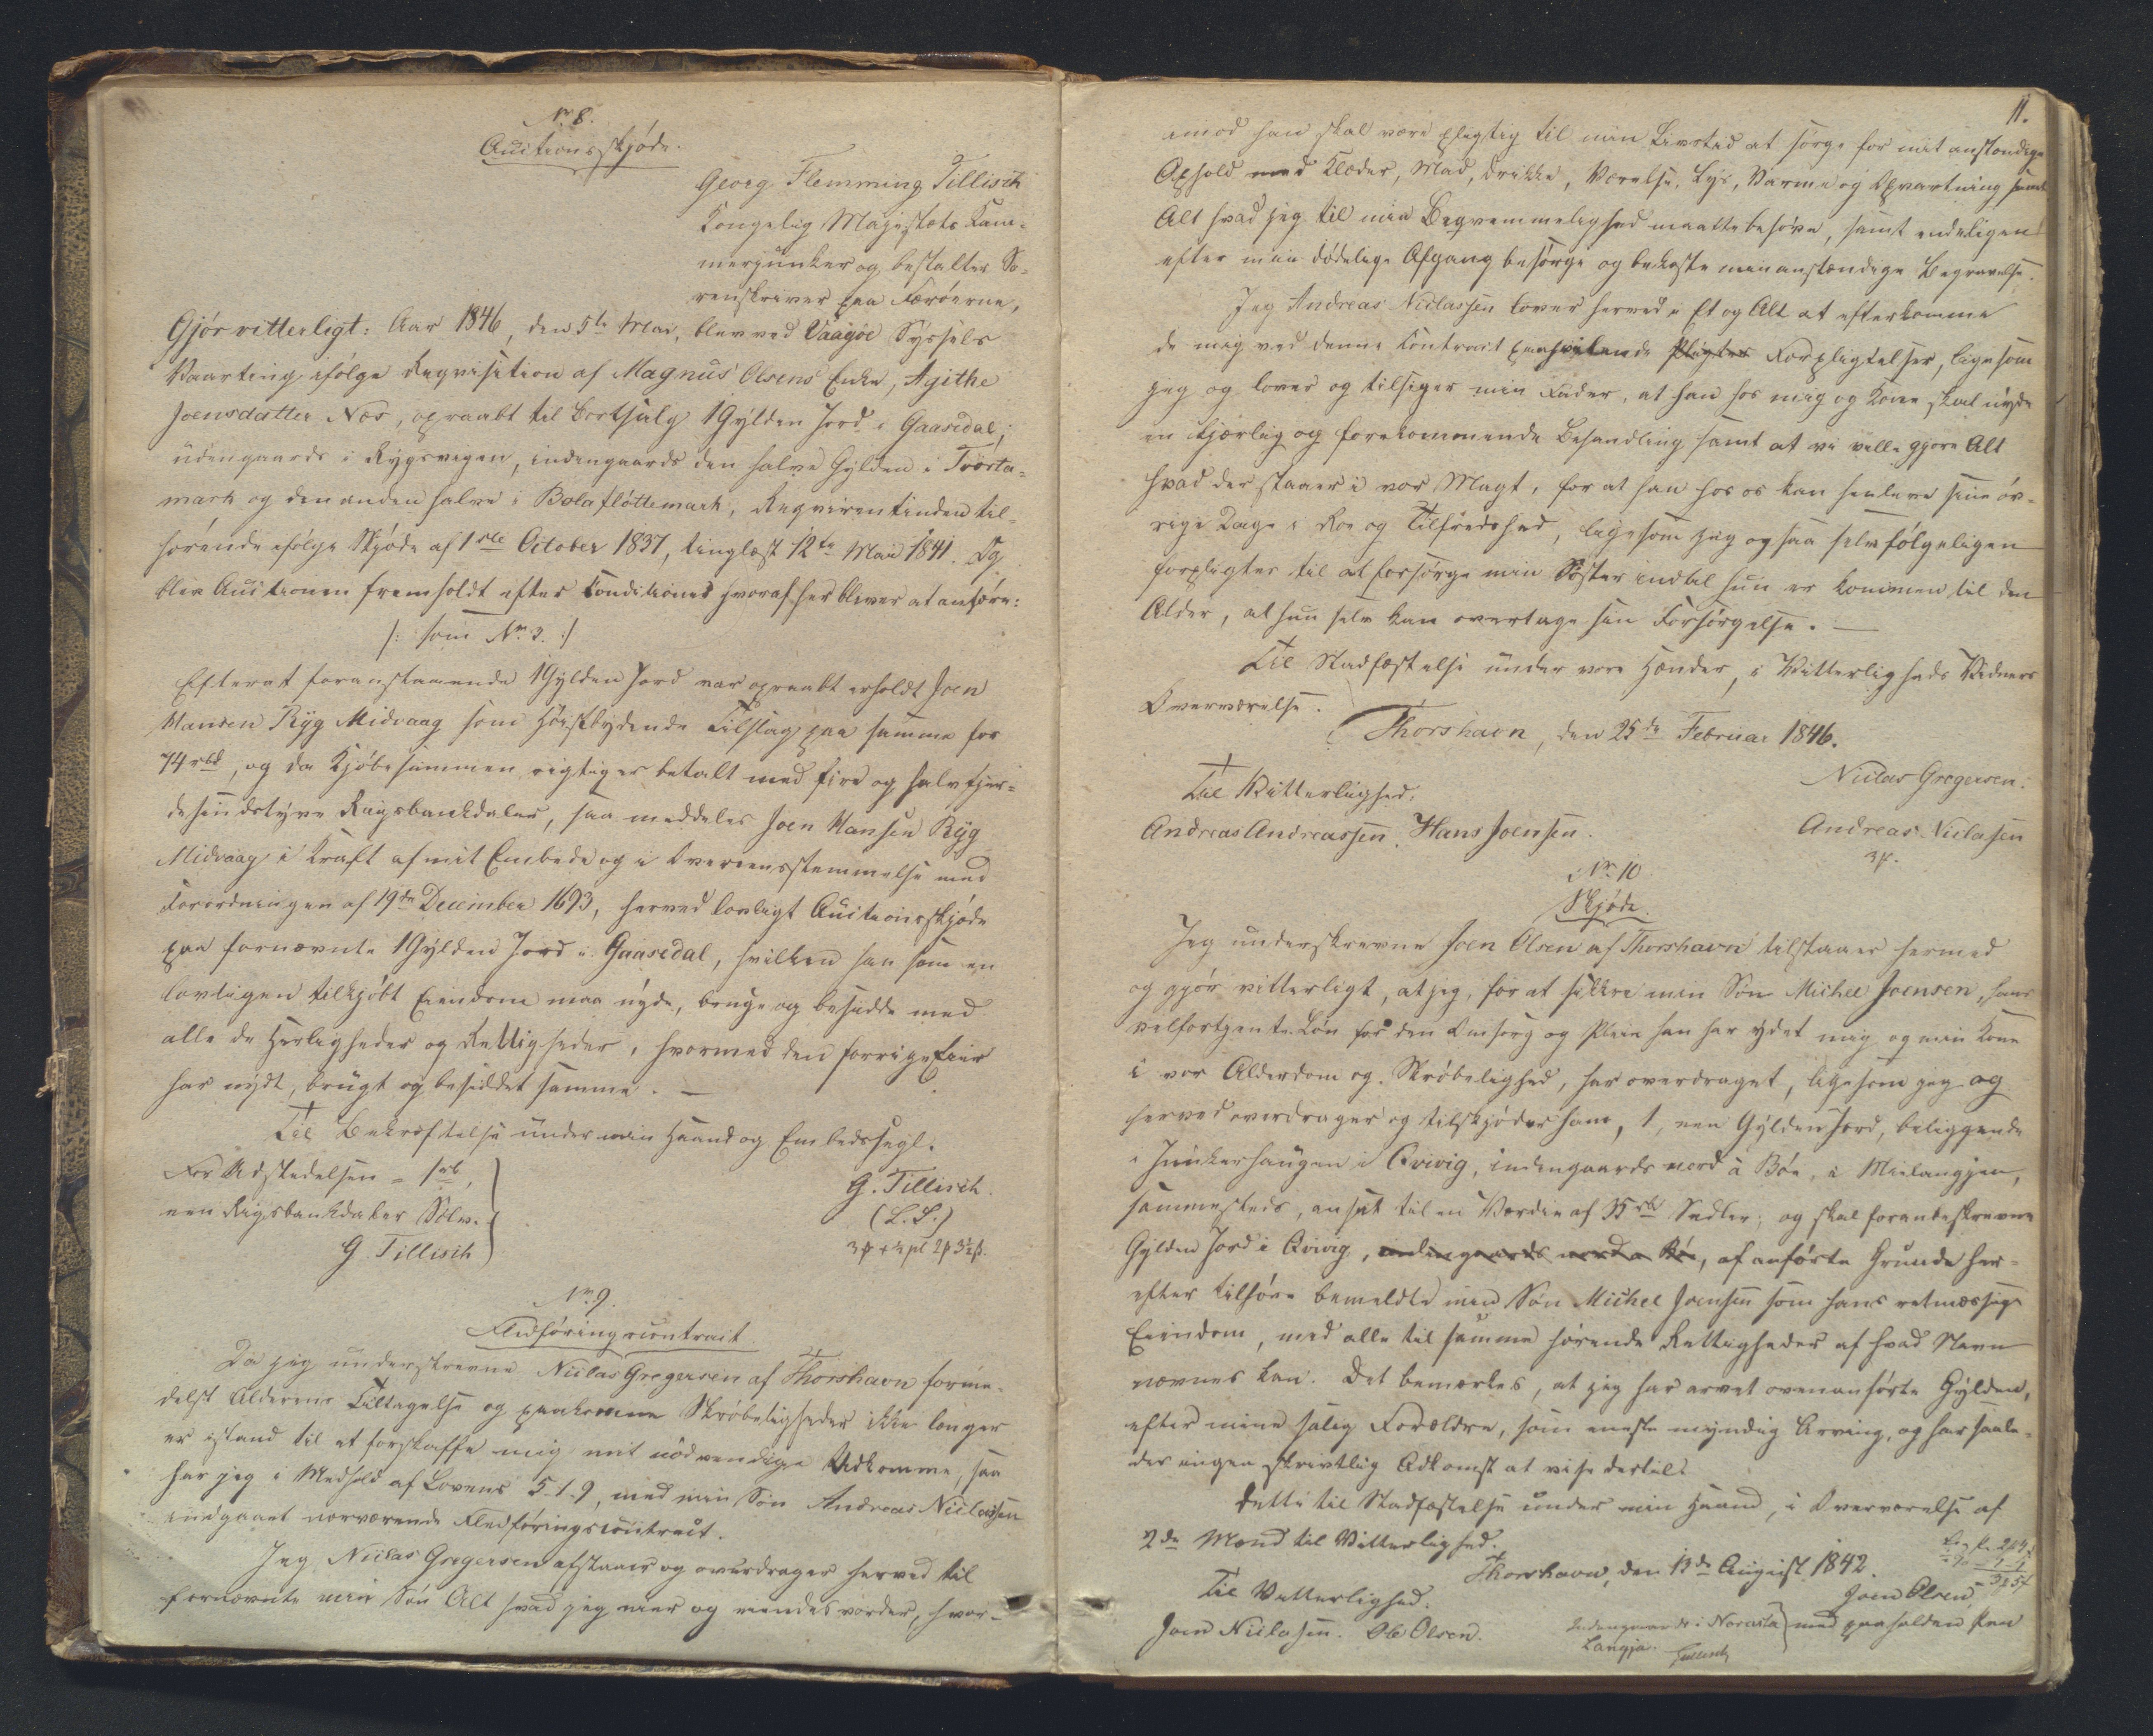 No 8.
Auctionsskjøde.
Georg Flemming Tillisch
Kongelig Majestæts Kam-
merjunker og bestalter So-
renskriver paa Færøerne,
Gjør vitterligt: Aar 1846, den 5te Mai, blev ved Vaagøe Syssels
Vaarting ifølge Reqvisition af Magnus Olsens Enke, Agithe
Joensdatter Næs, opraabt til Bortsalg 1 Gylden Jord i Gaasedal;
udengaards i Rygsvigen, indengaards den halve Gylden i Tvørta-
mark og den anden halve i Bolafløttemark, Reqvirentinden til-
hørende ifølge Skjøde af 1ste October 1837, tinglæst 12te Mai 1841. Og
blev Auctionen fremholdt efter Conditioner hvoraf her bliver at anføre:
/: som No 3. :/
Efterat foranstaaende 1 Gylden Jord var opraabt erholdt Joen
Hansen Ryg Midvaag som høistbydende Tilslag paa samme for
74 rbd, og da Kjøbesummen rigtig er betalt med fire og halvfjer-
desindstyve Rigsbankdaler, saa meddeles Joen Hansen Ryg
Midvaag i Kraft af mit Embede og i Overeensstemmelse med
Forordningen af 19de December 1693, herved lovligt Auctionsskjøde
paa fornævnte 1 Gylden Jord i Gaasedal, hvilken han som en
lovligen tilkjøbt Eiendom maa nyde, bruge og besidde med
alle de Herligheder og Rettigheder, hvormed den forrige Eier
har nydt, brugt og besiddet samme. —
Til Bekræftelse under min Haand og Embedssegl.
For Udstedelsen = 1 rb,
een Rigsbankdaler Sølv.
G. Tillisch
G. Tillisch.
(L. S.)
No 9.
Fledføringscontract.
Da jeg underskrevne Niclas Gregersen af Thorshavn forme-
delst Alderens Tiltagelse og paakomne Skrøbeligheder ikke længer
er istand til at forskaffe mig mit nødvendige Udkomme, saa
har jeg i Medhold af Lovens 5-1-9, med min Søn Andreas Niclassen
indgaaet nærværende Fledføringscontract.
Jeg Niclas Gregersen afstaaer og overdrager herved til
fornævnte min Søn Alt hvad jeg eier og eiendes vorder, hvor-
11.
imod han skal være pligtig til min Livstid at sørge for mit anstændige
Ophold med Klæder, Mad, Drikke, Værelse, Lys, Varme og Opvartning samt
Alt hvad jeg til min Beqvemmelighed maatte behøve, samt endeligen
efter min dødelige Afgang besørge og bekoste min anstændige Begravelse.
Jeg Andreas Niclassen lover herved i Et og Alt at efterkomme
de mig ved denne Contract paahvilende Pligter Forpligtelser, ligesom
jeg og lover og tilsiger min Fader, at han hos mig og Kone skal nyde
en kjærlig og forekommende Behandling samt at vi ville gjøre Alt
hvad der staaer i vor Magt, for at han hos os kan henleve sine øv-
rige Dage i Roe og Tilfredshed, ligesom jeg ogsaa selvfølgeligen
forpligter til at forsørge min Søster indtil hun er kommen til den
Alder, at hun selv kan overtage sin Forsørgelse. —
Til Stadfæstelse under vore Hænder, i Vitterligheds Vidners
Overværelse.
Thorshavn, den 25de Februar 1846.
Niclas Gregersen.
Til Vitterlighed,
Andreas Andreassen. Hans Joensen.
Andreas Niclasen
No 10
Skjøde.
Jeg underskrevne Joen Olsen af Thorshavn tilstaaer hermed
og gjør vitterligt, at jeg, for at sikkre min Søn Michel Joensen, hans
velfortjente Løn for den Omsorg og Pleie han har ydet mig og min Kone
i vor Alderdom og Skrøbelighed, har overdraget, ligesom jeg og
herved overdrager og tilskjøder ham, 1, een Gylden Jord, beliggende
i Junkerhaugen i Qvivig, indengaards nord a Bøe, i Mielangjen,
sammesteds, ansat til en Værdie af 35 rbd Sedler; og skal foranbeskrevne
Gylden Jord i Qvivig, indengaards nord a Bøe, af anførte Grunde her-
efter tilhøre bemeldte min Søn Michel Joensen som hans retmæssige
Eiendom, med alle til samme hørende Rettigheder af hvad Navn
nævnes kan. Det bemærkes, at jeg har arvet ovenanførte Gylden,
efter mine salig Forældre, som eneste myndig Arving, og har saale-
des ingen skrivtlig Adkomst at vise dertil.
Dette til Stadfæstelse under min Haand, i Overværelse af
2de Mænd til Vitterlighed.
Thorshavn, den 13de August 1842.
Til Vitterlighed.
Joen Olsen
Joen Niclasen. Ole Olsen.
med paaholden Pen
Indengaards i Norasta
Langja. Tillisch